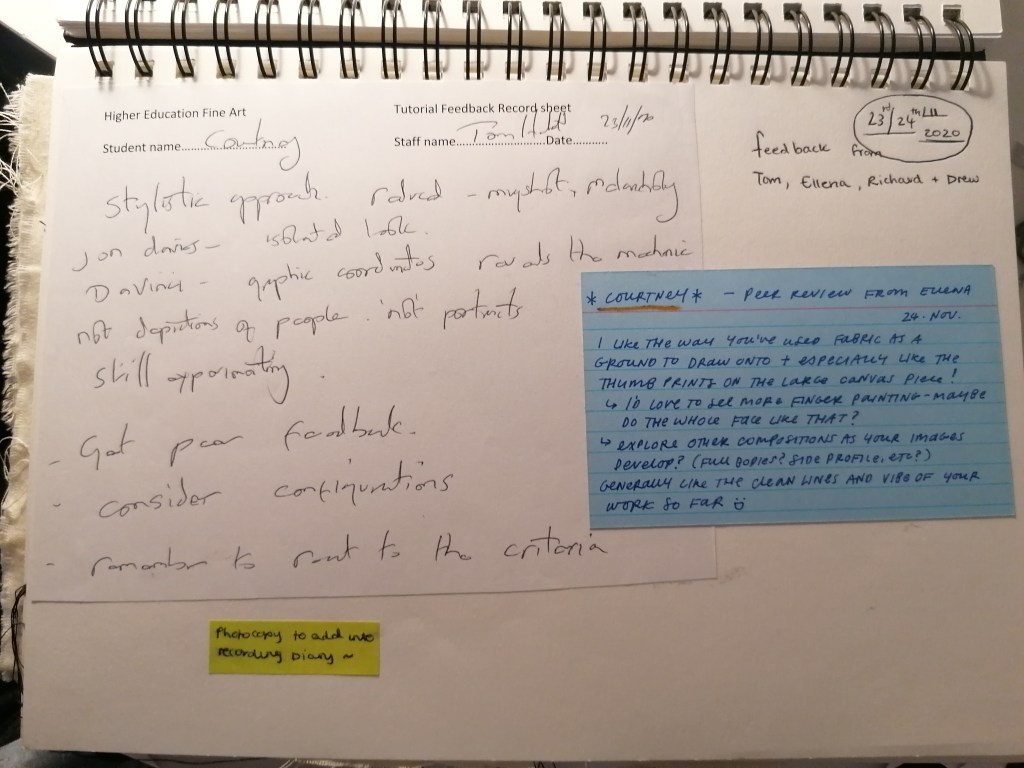 Higher Education Fine Art
Tutorial Feedback Record sheet
Student name............ Courtney
Staff name............ Tom Date.......... 23/11/20
Stylistic approach. reduced -
Jon davies - isolated look.
DaVinci - graphic coordinates reveals the
not depictions of people. not portraits
still experimenting.
- Get peer feedback.
- consider configurations
- remember to to the criteria
23rd/24th/11
2020
feedback from
Tom, Ellena, Richard + Drew
* COURTNEY * - PEER REVIEW FROM ELLENA
24. NOV.
I LIKE THE WAY YOU'VE USED FABRIC AS A
GROUND TO DRAW ONTO + ESPECIALLY LIKE THE
THUMB PRINTS ON THE LARGE CANVAS PIECE!
↳ I'D LOVE TO SEE MORE FINGER PAINTING - MAYBE
DO THE WHOLE FACE LIKE THAT?
↳ EXPLORE OTHER COMPOSITIONS AS YOUR IMAGES
DEVELOP? (FULL BODIES? SIDE PROFILE, ETC?)
GENERALLY LIKE THE CLEAN LINES AND VIBE OF YOUR
WORK SO FAR :)
Photocopy to add into
recording Diary ~